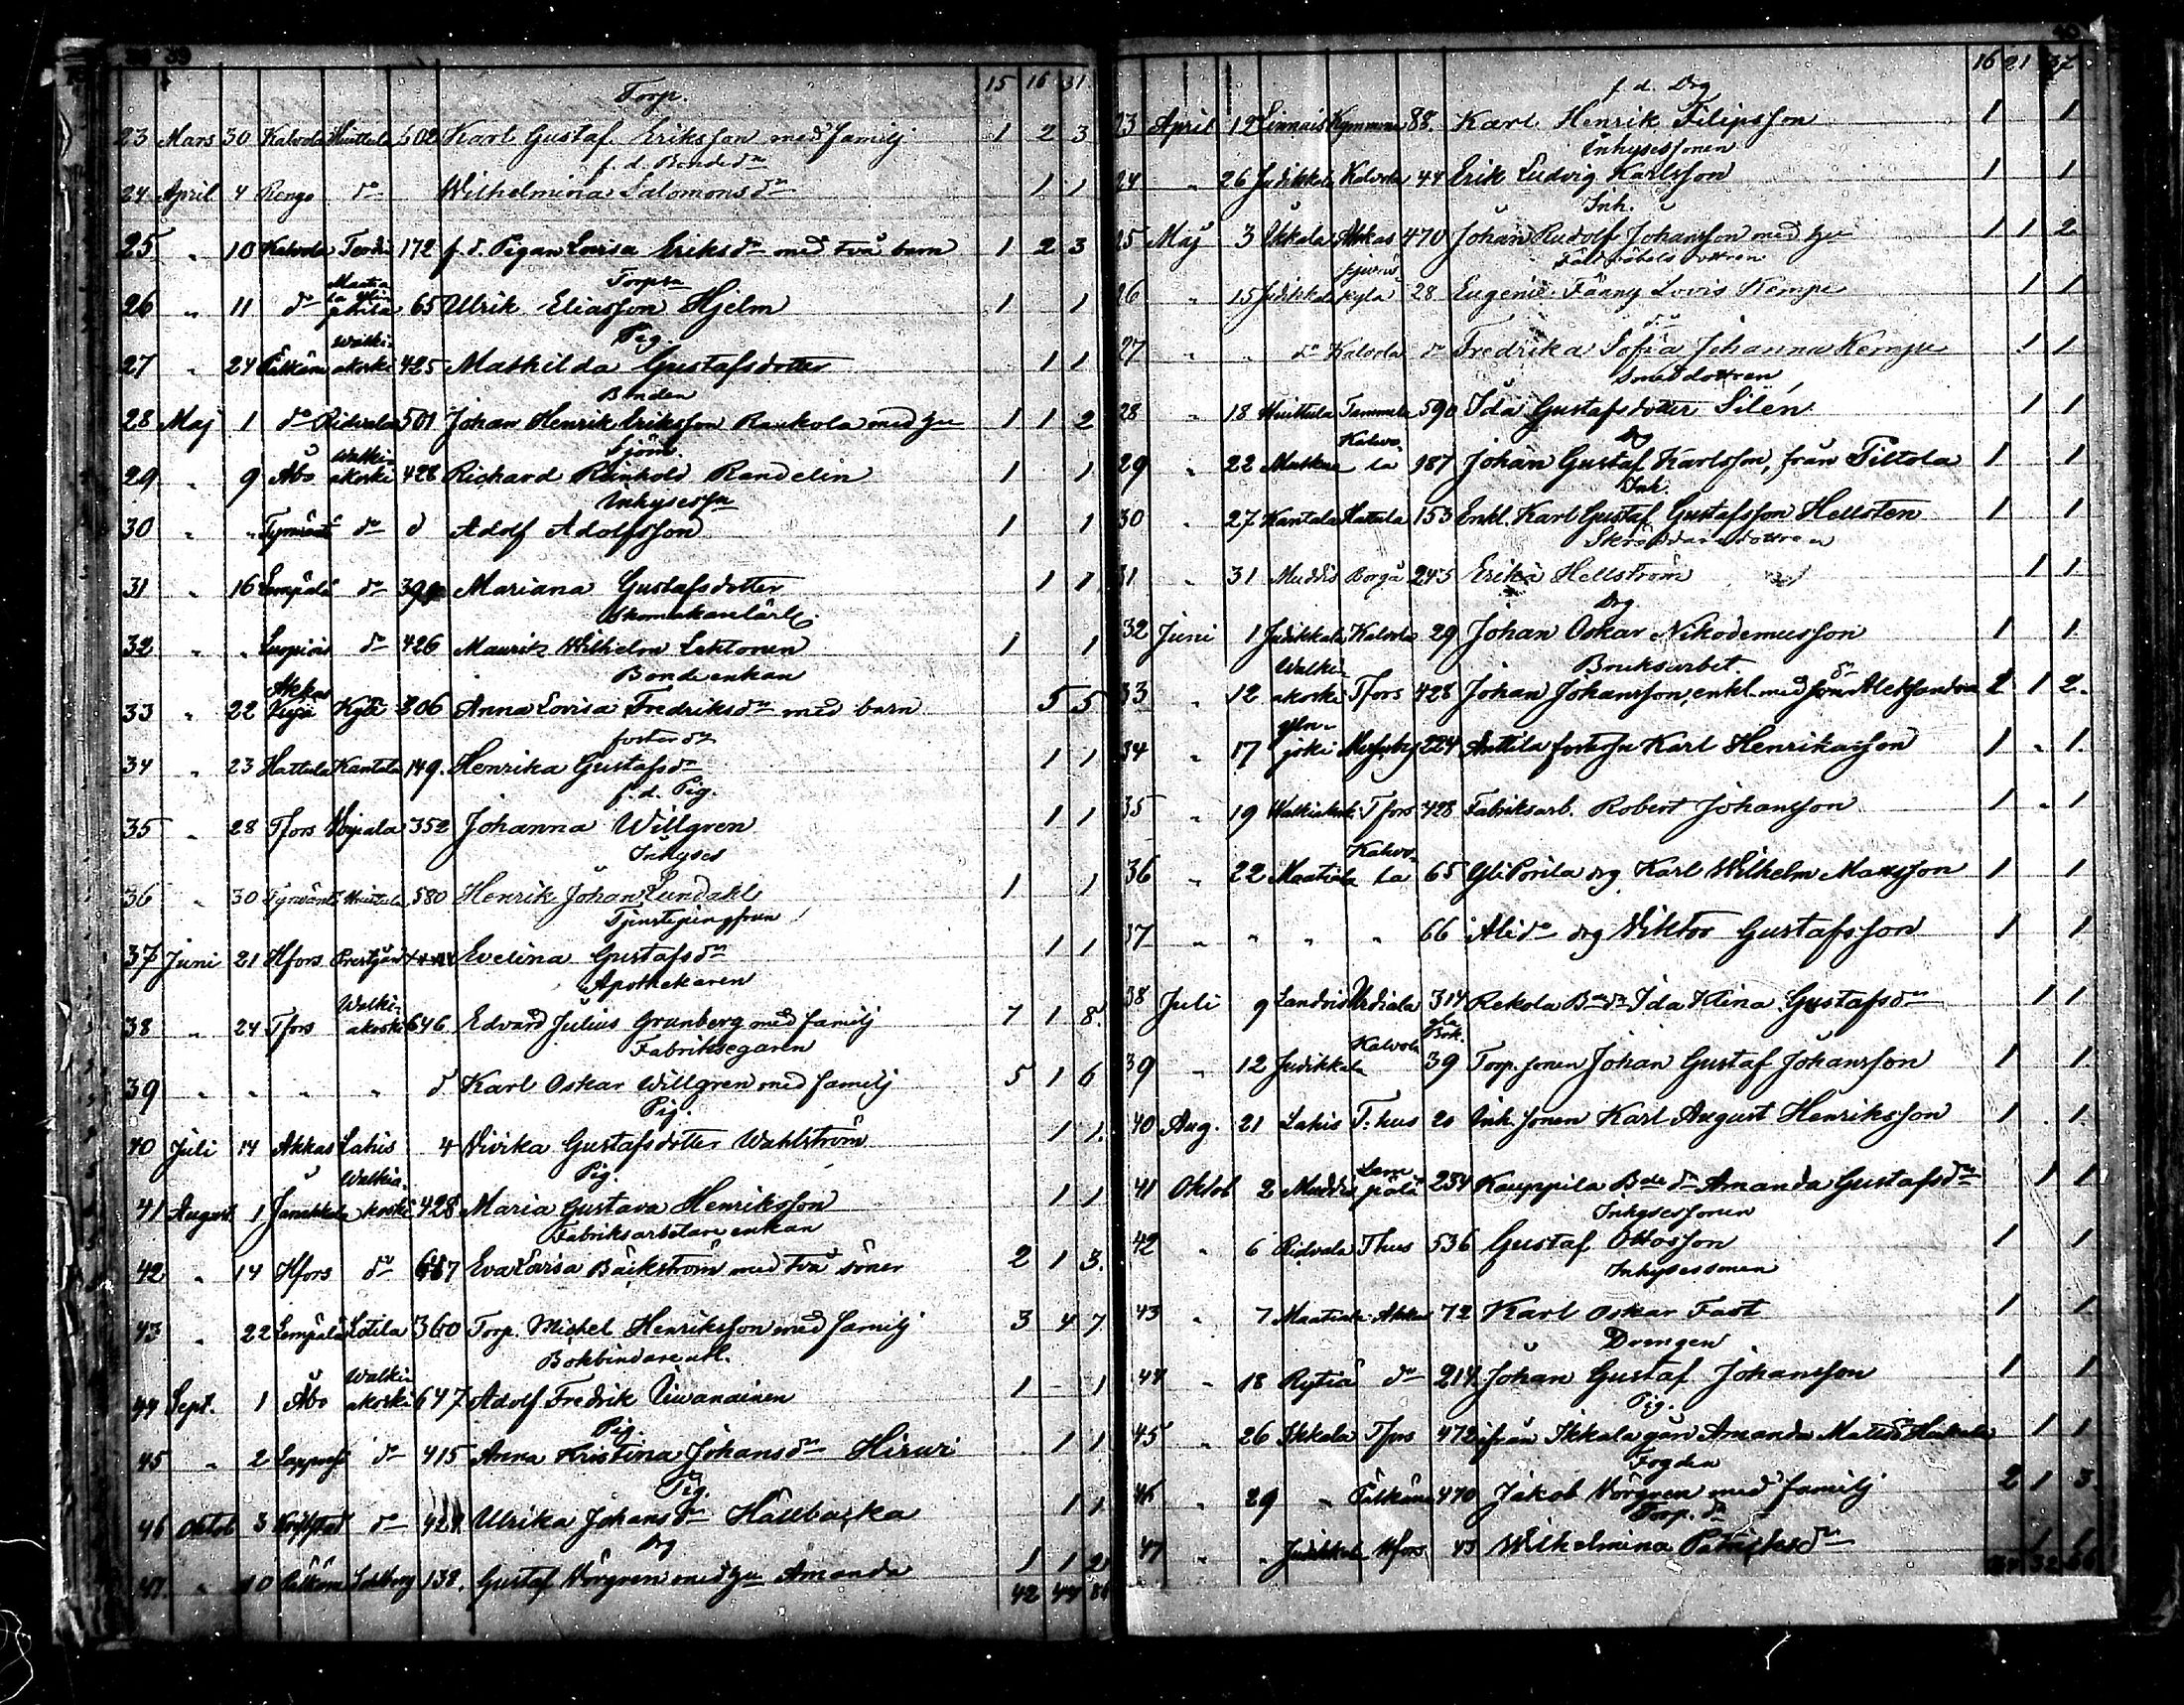 39
15 16 31
Torp.
23 Mars 30 Kalvola Huittula 502 Karl Gustaf Eriksson med familj 1 2 3
f. d. Bonde dr
24 April 4 Rengo do Wilhelmina Salomons dr 1 1
25 " 10 Kalvola 172 f. d. Pigan Lovisa Eriks dr med två barn 1 2 3
Torpsn
26 " 11 do 65 Ulrik Eliasson Hjelm 1 1
Walki- Pig.
27 " 24 Pälkäne akoski 425 Mathilda Gustafsdotter 1 1
Bonden
28 Maj 1 do Ridvala 501 Johan Henrik Eriksson Raukola med hu 1 1 2
Walki- Sjöm.
29 " 9 Åbo akoski 428 Richard Reinhold Randelin 1 1
Inhysessn
30 " " Tyrväntö do d Adolf Adolfsson 1 1
31 " 16 Lempälä do Mariana Gustafsdotter 1 1
Skomakarelärl.
32 " " Kuopio do 426 Maurits Wilhelm Lehtonen 1 1
Akkas Bondeenkan
33 " 22 Kylä 306 Anna Lovisa Fredriks dr med barn 5 5
foster dr
34 " 23 Hattula Kantala 149. Henrika Gustafs dr 1 1
f. d. Pig.
35 " 28 Tfors Woipala 352 Johanna Willgren 1 1
Inhyses
36 " 30 Tyrväntö Huittula 580 Henrik Johan Lundahl 1 1
Tjenstejungfrun
37 Juni 21 Hfors Prestgård Evelina Gustafs dr 1 1
Walki- Apothekaren
38 " 24 Tfors akoski 646 Edvard Julius Grunberg med familj 7 1 8.
Fabriksegaren
39 " " " " d Karl Oskar Willgren med familj 5 1 6
Pig.
40 Juli 14 Akkas Lahis 4 Vivika Gustafsdotter Wahlström 1 1.
Walkia- Pig.
41 August 1 Janakkala koski 428 Maria Gustava Henriksson 1 1
Fabriksarbetare enkan
42 " 14 Hfors do Eva Lovisa Bäckström med två söner 2 1 3.
43 " 22 Lempälä Lotila 360 Torp. Michel Henriksson med familj 3 4 7
Walki- Bokbindare
44 Sept. 1 Åbo akoski 647 Adolf Fredrik Viwanainen 1 1
Pig.
45 " 2 do 415 Anna Kristina Johans dr Hirwi 1 1
Pig.
46 Oktob 3 do Ulrika Johans dr Hallbacka 1 1
Drg
47. " 10 Pälkäne 138. Gustaf Norgren med hu Amanda 1 1 2
42 44
16 21 37
f. d. Drg
23 April 12 88. Karl Henrik Filipsson 1 1
Inhysessonen
24 " 26 Judikkala Kalvola 44 Erik Ludvig Karlsson 1 1
Inh.
25 Maj 3 Ikkala Akkas 470 Johan Rudolf Johansson med hu 1 1 2
26 " 15 Judikkala kylä 28 Eugenie Fanny Lovis Kempe 1 1
do
27 " " do Kalvola do Fredrika Sofia Johanna Kempe 1 1
Smeddottren
28 " 18 Huittula Tammela 590 Ida Gustafsdotter Silén 1 1
Kalvo- Drg
29 " 22 la 187 Johan Gustaf Karlsson, från Tittola 1 1
Inh.
30 " 27 Kantala Hattula 153 Enkl. Karl Gustaf Gustafsson Hellsten 1 1
Skräddaredottren
31 " 31 Muddis Borgå 245 Erika Hellström 1 1
Drg.
32 Juni 1 Judikkala Kalvola 29 Johan Oskar Nikodemusson 1 1
Walki- Bruksarbet
33 " 12 akoski Tfors 428 Johan Johansson, enkl. med Aleksandra 1 1 2.
34 " 17 joki 224 Anttila fosterson Karl Henriksson 1 " 1.
35 " 19 Walkiakoski Tfors 428 Fabriksarb. Robert Johansson 1 " 1
Kalvo-
36 " 22 Maatiala la 65 Yli Porila drg Karl Wilhelm Mansson 1 1
37 " " " " 66 Ali do drg Viktor Gustafsson 1 1
38 Juli 9 Urdiala 314 Rekola B. dr Ida Stina Gustafs dr 1 1
Kalvola
39 " 12 Judikkala 39 Torp. sonen Johan Gustaf Johansson 1 1.
40 Aug. 21 Lahis T. hus 20 Inh. sonen Karl August Henriksson 1 1.
Lem-
41 Oktob 2 Muddis pälä 254 Kauppila Bde dr Amanda Gustafs dr 1 1
Inhysessonen
42 " 6 Ridvala Thus 536 Gustaf Ottosson 1 1
Inhysessonen
43 " 7 Maatiala Akkas 72 Karl Oskar Fast 1 1
Drengen
44 " 18 Rytiä do 214. Johan Gustaf Johansson 1 1
Pig.
45 " 26 Ikkala Tfors 472 ifrån Ikkala gård Amanda 1 1
Fogden
46 " 29 " Pälkäne 470 Jakob Norgren med familj 2 1 3.
Torp. dr
47 " " Judikkala Hfors 43 Wilhelmina Patricks dr 1 1